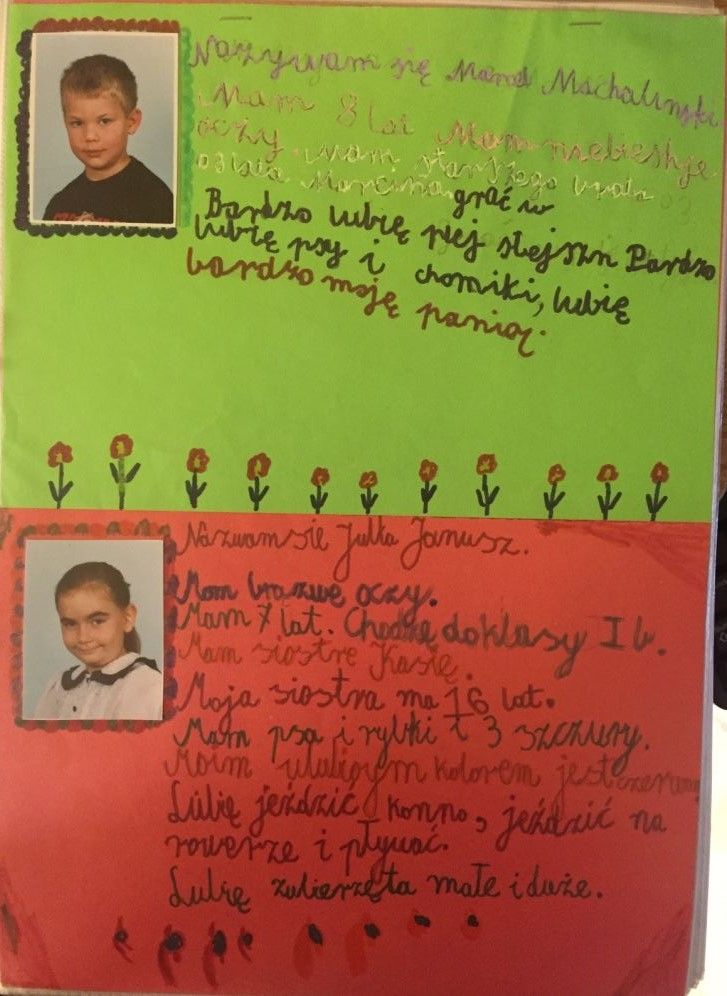 Nazywam się Marcel Machalinski
Mam 8 lat Mam niebieskje
oczy. Mam starszego brata
brata Marcina.
grać w
Bardzo lubię plej stejszn Bardzo
lubię psy i chomiki, lubię
bardzo moję panią.
Nazwam sie Julka Janusz.
Mam brazwe oczy.
Mam 7 lat. Chodzę do klasy I b.
Mam siostrę Kasię.
Moja siostra ma 16 lat.
Mam psa i rybki i 3 szczury.
Moim ulubioym kolorem jest czerwony
Lubię jeździć konno, jeździć na
rowerze i pływać.
Lubię zwierzęta małe i duże.